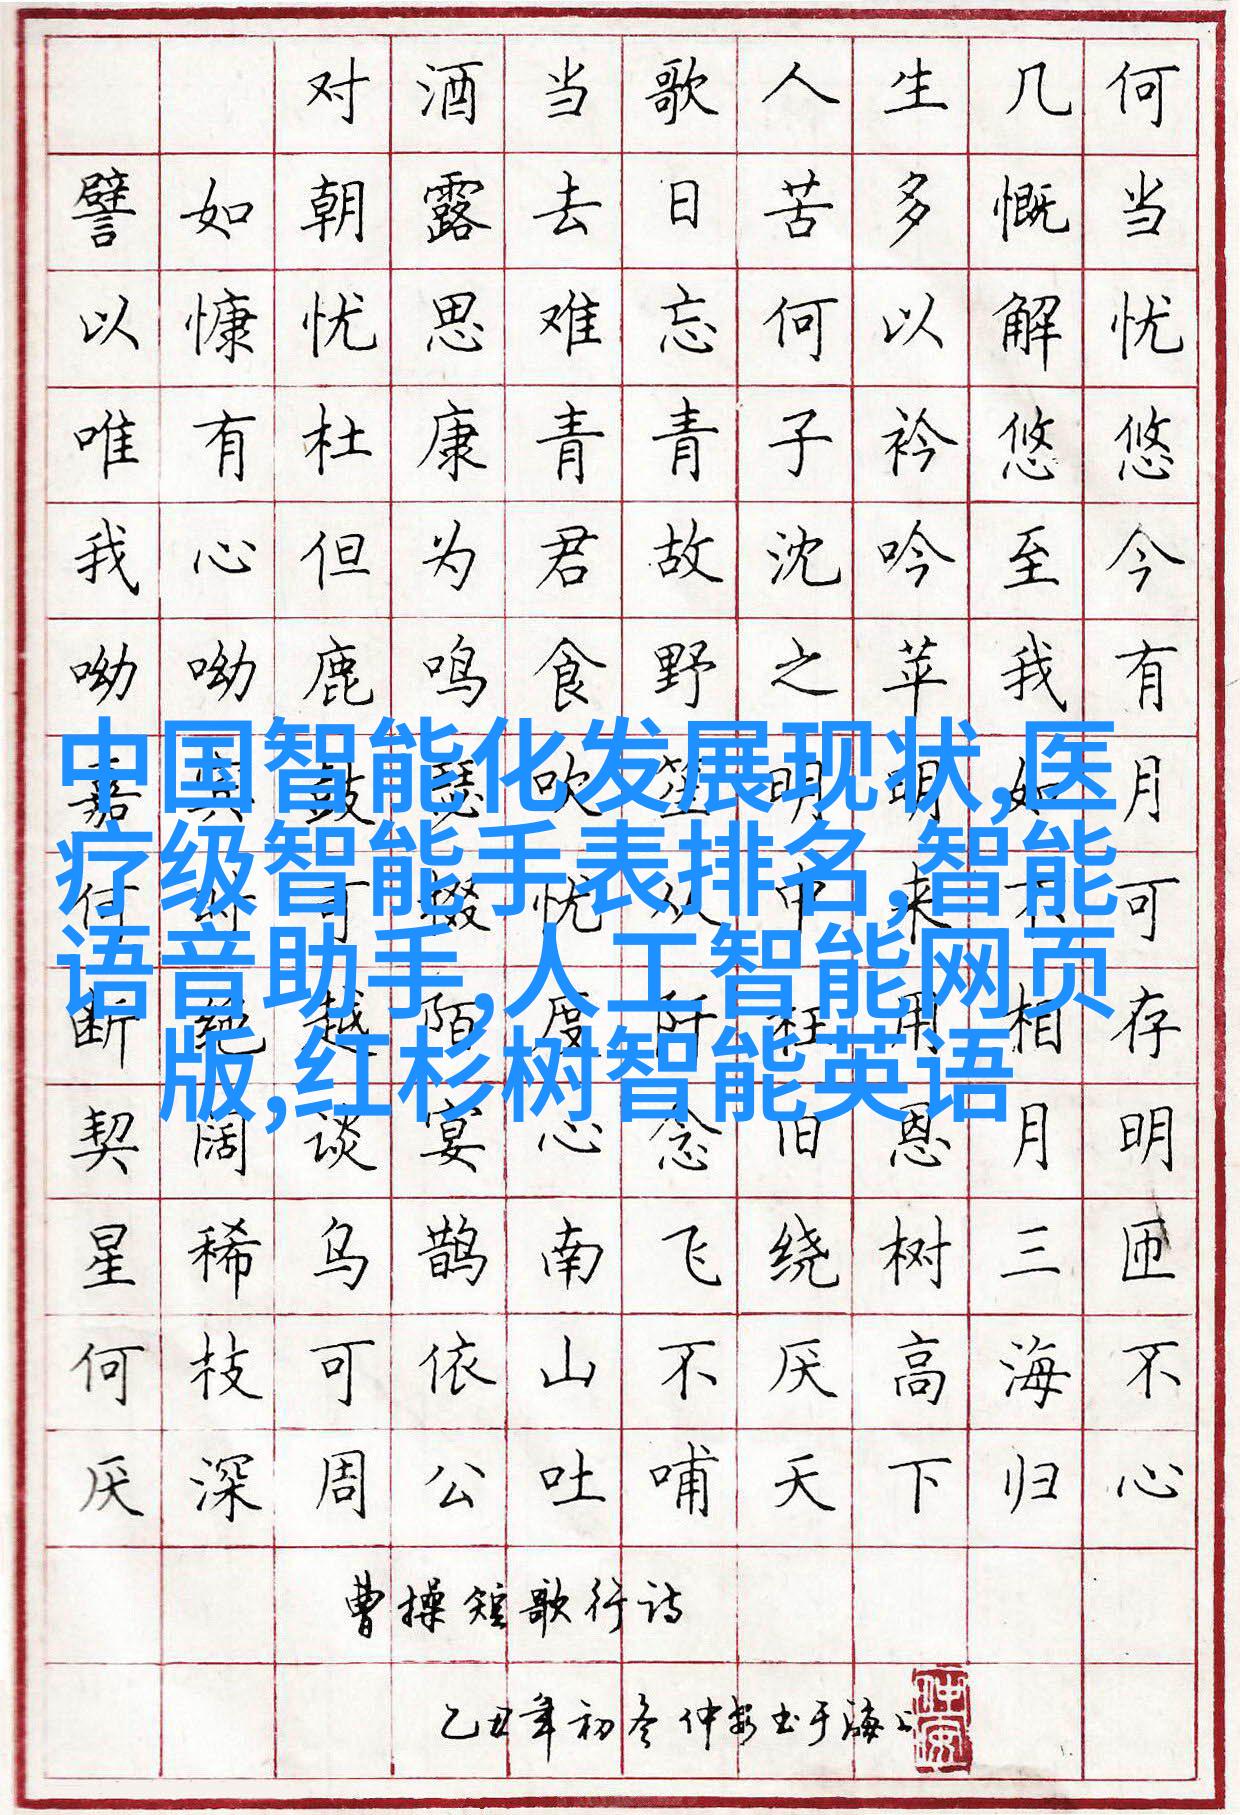 对酒当歌人生几何
譬如朝露去日苦多慨当
以慷忧思难忘何以解忧
唯有杜康青青子衿悠悠
我心但为君故沈吟至今
呦呦鹿鸣食野之苹我有
嘉宾鼓瑟吹笙明明如月
中国智能化发展现状,医
疗级智能手表排名,智能
语音助手,人工智能网页
版,红杉树智能英语
何时可掇忧从中来不可
断绝越陌度阡枉用相存
契阔谈宴心念旧恩月明
星稀乌鹊南飞绕树三匝
何枝可依山不厌高海不
厌深周公吐哺天下归心
曹操短歌行诗
乙丑年初冬仲安书于海上
仲安